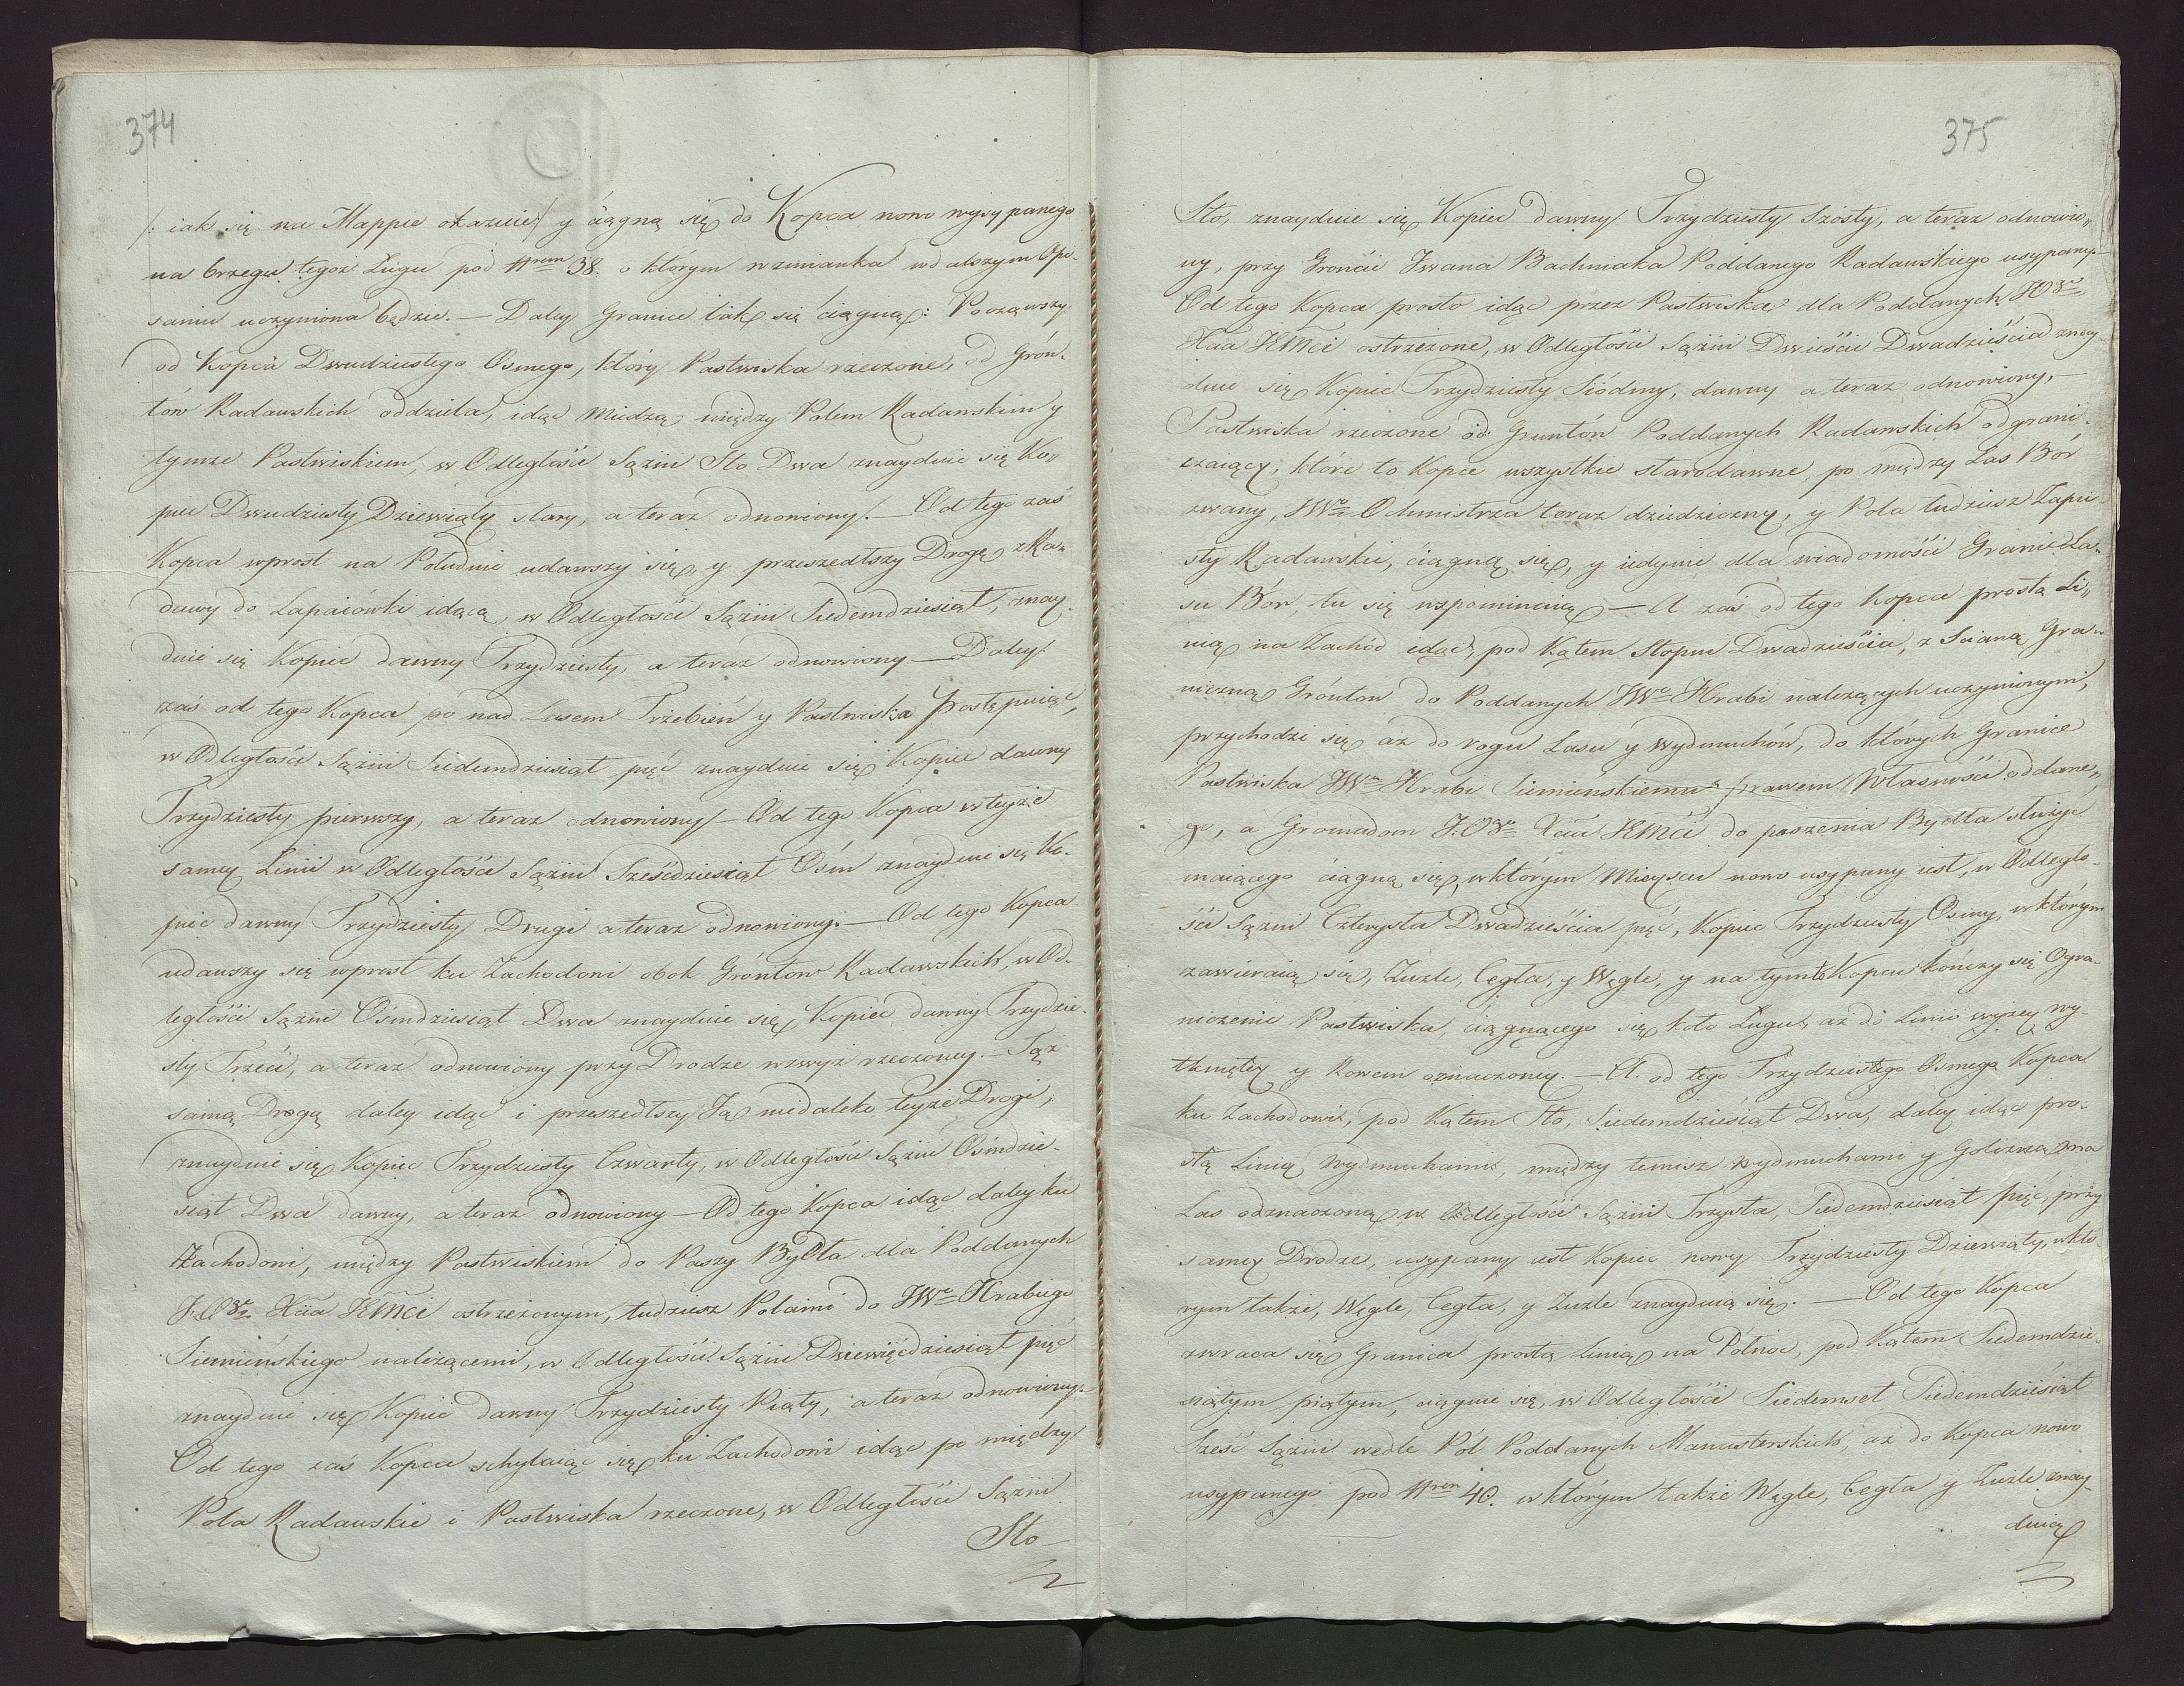 374
/: iak się na Mappie okazuie :/ y ciągną się do Kopca nowo wysypanego
na brzegu tegoż Ługu pod Nrem 38. o którym wzmianka w dalszym Opi-
saniu uczyniona będzie. — Daley Granice tak się ciągną: Począwszy
od Kopca Dwudziestego Osmego, który Pastwiska rzeczone, od Grón-
tów Radawskich oddziela, idąc Miedzą między Polem Radawskim y
tymże Pastwiskiem, w Odległości Sążni Sto Dwa znayduie się Ko„
piec Dwudziesty Dziewiąty stary, a teraz odnowiony. — Od tego zaś
Kopca wprost na Południe udawszy się, y przeszedłszy Drogę z Ra„
dawy do Łapaiówki idącą, w Odległości Sążni Siedemdziesiąt, znay„
duie się Kopiec dawny Trzydziesty, a teraz odnowiony — Daley
zaś od tego Kopca po nad Lasem Trzebień y Pastwiska postępuiąc,
w Odległości Sążni Siedemdziesiąt pięć znayduie się Kopiec dawny
Trzydziesty pierwszy, a teraz odnowiony — Od tego Kopca w teyże
samey Linii w Odległości Sążni Sześćdziesiąt Ośm znayduie się Ko-
piec dawny Trzydziesty Drugi a teraz odnowiony. — Od tego Kopca
udawszy się wprost ku Zachodowi obok Gróntow Radawskich, w Od-
ległości Sążni Ośmdziesiąt Dwa znayduie się Kopiec dawny Trzydzie-
sty Trzeci, a teraz odnowiony przy Drodze wzwyż rzeczoney. — Tąż
samą Drogą daley idąc i przeszedłszy Ją niedaleko teyże Drogi,
znayduie się Kopiec Trzydziesty Czwarty, w Odległości Sążni Ośmdzie-
siąt Dwa dawny, a teraz odnowiony — Od tego Kopca idąc daley ku
Zachodowi, między Pastwiskiem do Paszy Bydła dla Poddanych
J.O. Xcia JKMci ostrzeżonym, tudziesz Polami do JWo Hrabiego
Siemieńskiego należącemi, w Odległości Sążni Dziewięćdziesiąt pięć
znayduie się Kopiec dawny Trzydziesty Piąty, a teraz odnowiony.
Od tego zaś Kopca schylaiąc się ku Zachodowi idąc po między
Pola Radawskie i Pastwiska rzeczone, w Odległości Sążni
Sto
375
Sto, znayduie się Kopiec dawny Trzydziesty Szósty, a teraz odnowio„
ny, przy Grońcie Jwana Bachniaka Poddanego Radawskiego usypany.
Od tego Kopca prosto idąc przez Pastwiska dla Poddanych JO
Xcia JKMci ostrzeżone, w Odległości Sążni Dwieście Dwadzieścia znay-
duie się Kopiec Trzydziesty Siódmy, dawny a teraz odnowiony, —
Pastwiska rzeczone od Gruntów Poddanych Radawskich odgrani-
czaiący, które to Kopce wszystkie starodawne, po między Las Bór
zwany, JWo Ochmistrza teraz dziedziczny, y Pola tudziesz Zapu-
sty Radawskie, ciągną się, y iedynie dla wiadomości Granic La„
su Bór, tu się wspominaią — A zaś od tego Kopca prostą Li„
nią na Zachód idąc, pod Kątem Stopni Dwadzieścia, z Scianą Gra„
niczną Gróntow do Poddanych JWo Hrabi należących uczynionym,
przychodzi się aż do rogu Lasu y Wydmuchów, do których Granice
Pastwiska JWu Hrabi Siemieńskiemu prawem Własności oddane„
go, a Gromadom J.O. Xcia JKMci do paszenia Bydła służyć
maiącego ciągną się, w którym Mieyscu nowo usypany iest, w Odległo-
ści Sążni Czterysta Dwadzieścia pięć, Kopiec Trzydziesty Osmy, w którym
zawieraią się, Zuzle, Cegła, y Węgle, y na tymto Kopcu kończy się Ogra-
niczenie Pastwiska, ciągnącego się koło Ługu, aż do Linii wyżey wy-
tkniętey y Rowem oznaczoney. — A od tego Trzydziestego Osmego Kopca
ku Zachodowi, pod Kątem Sto, Siedemdziesiąt Dwa, daley idąc pro-
stą Linią, Wydmuchami, między temisz Wydmuchami y Golizną na
Las odznaczoną w Odległości Sążni Trzysta, Siedemdziesiąt pięć, przy
samey Drodze, usypany iest Kopiec nowy Trzydziesty Dziewiąty, w któ-
rym także, Węgle, Cegła, y Zuzle znayduią się. — Od tego Kopca
zwraca się Granica prostą Linią na Północ, pod Kątem Siedemdzie-
siątym piątym, ciągnie się, w Odległości Siedemset Siedemdziesiąt
Sześć Sążni wedle Pól Poddanych Manasterskich, aż do Kopca nowo
usypanego pod Nrem 40. w którym także Węgle, Cegła y Zuzle znay-
duią